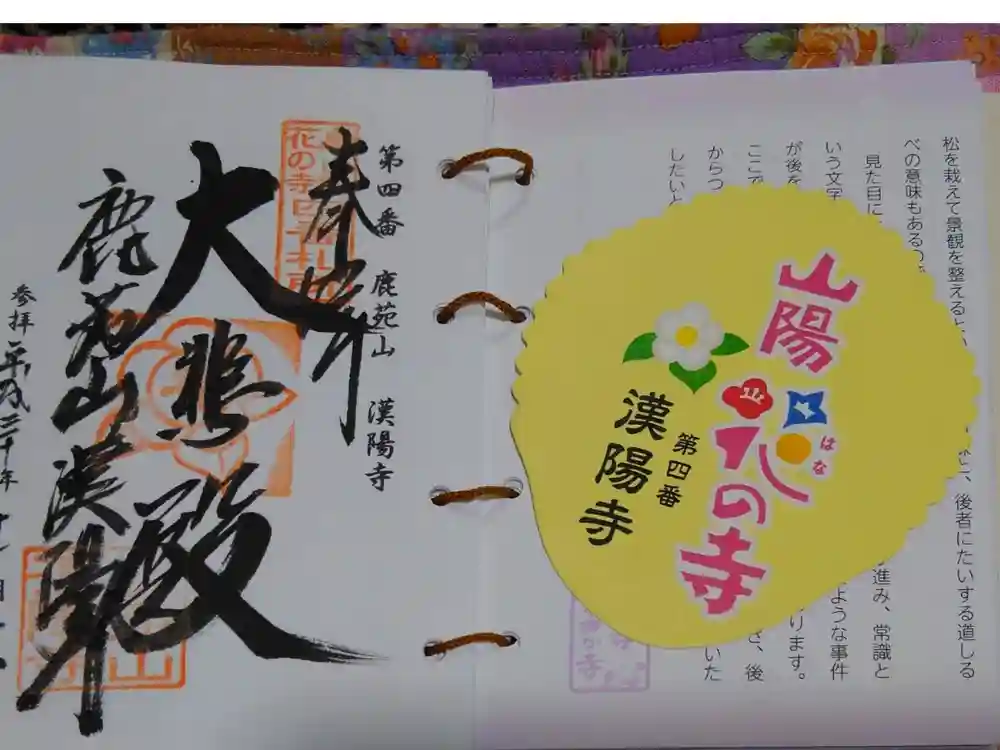 松を栽えて景観を整えると
べの意味もあるので
見た目に
いう文字
が後を
ここで
からつ
したいと
に、後者にたいする道しる
進み、常識と
ような事件
ります。
さ、後
いた
山陽
花の寺
はな
第四番
漢陽寺
第四番 鹿苑山 漢陽寺
奉拝
花の寺
大悲殿
鹿苑山漢陽寺
山
参拝 平成二十年